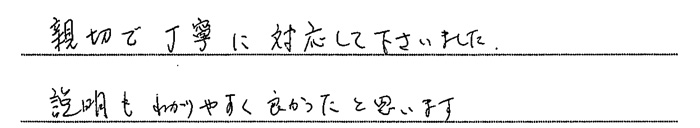 親切で丁寧に対応して下さいました.
説明もわかりやすく良かったと思います